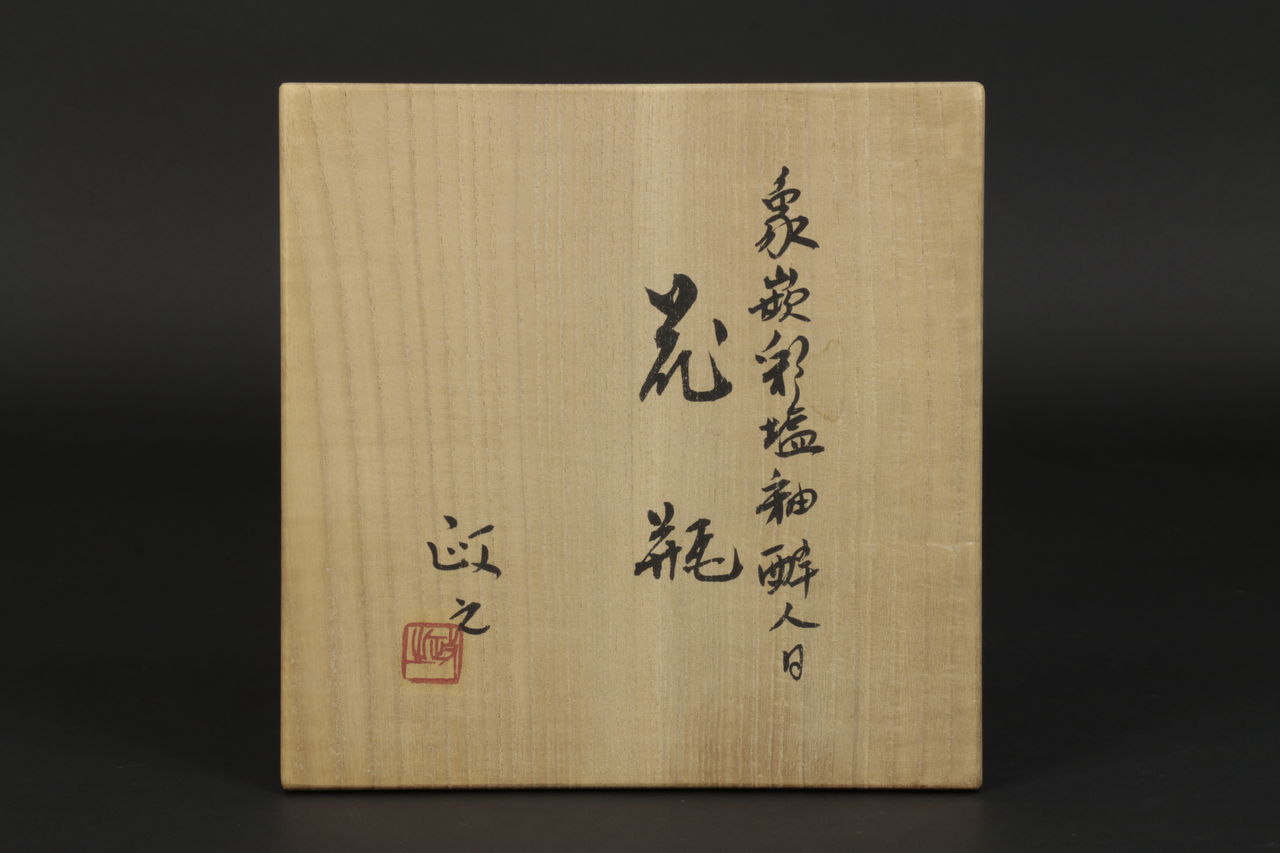 象嵌彩塩釉酔人日
花瓶
政之